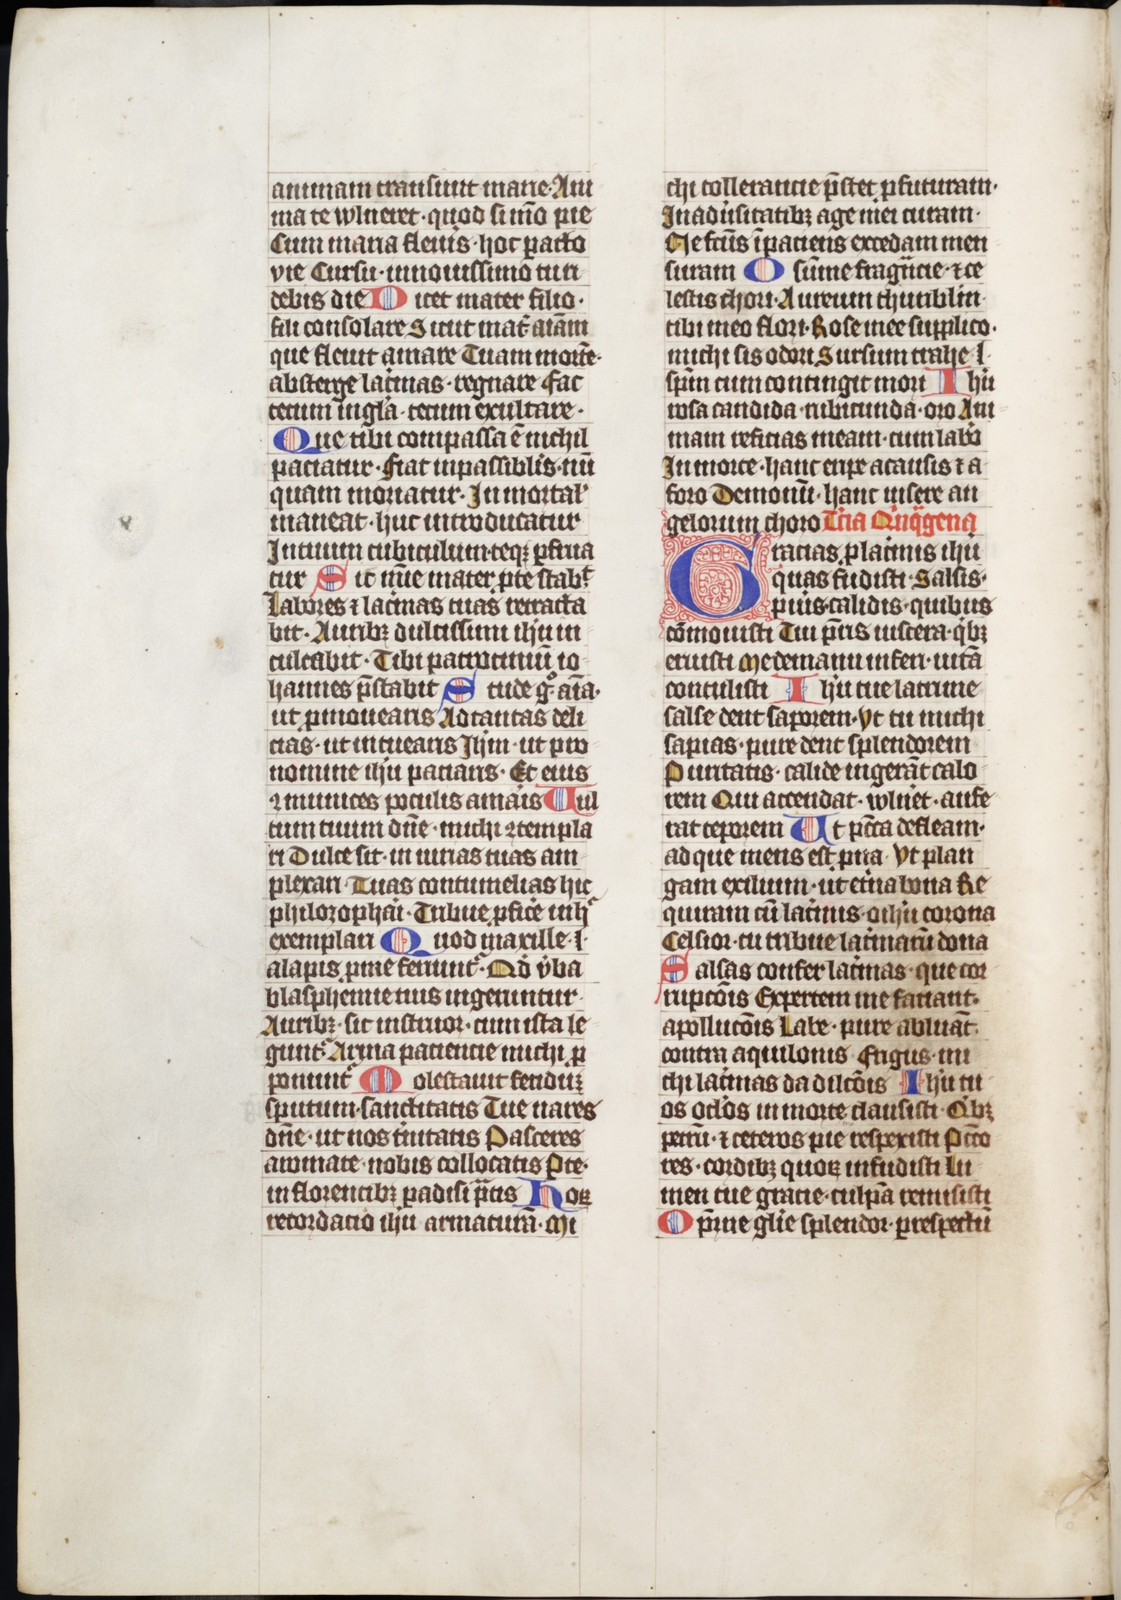 animam transiuit marie · Ani
ma te wlneret · quod si īmo pie
Cum maria fleuis · hoc pacto
vie Cursu · in nouissimo turi
debis die Dicet mater filio ·
fili consolare Sicut mat̄ aīam
que fleuit amare Tuam mortē ·
absterge lacīmas · regnare fac
tecum ingl̄a · tecum exultare ·
Que tibi compassa ē nichil
paciatur · fiat inpassiblis · nū
quam moriatur · In mortal
maneat · huc introducatur
In tuum cubiculum · teqꝫ p̄frua
tur Sit mīe mater p̄te stab̄t
Labores ⁊ lac̄mas tuas retracta
bit · Auribꝫ dulcissimū ih̄u in
culcabit · Tibi patrociniū io
hannes p̄stabit Stude g̊ aīa ·
ut p̄mouearis Ad tantas deli
cias · ut intuearis Ih̄m · ut pro
nomine ih̄u paciaris · Et eius
⁊munices poculis amāis Vul
tum tuum dn̄e · michi ⁊templa
ri Dulce sit · in iunas tuas am
plexari Tuas contumelias hic
philozophāi · Tribue p̄fice mih̄
exemplari Quod maxille · ī
alapis p̄me feriunt̄ · Qd v̄ba
blasphemie tuis ingeruntur ·
Auribꝫ · sit instruor · cum ista le
gunt̄ Arma paciencie michi p̄
ponunt̄ Molestauit fetiduꝫ
sputum · sanctitatis Tue nares
dn̄e · ut nos t̄nitatis Pasceres
aromate · nobis collocatis Pte ·
in florentibꝫ padisi p̄tis Hoꝝ
recordacio ih̄u armaturā · Mi
chi tollerancie p̄stet p̄futuram ·
In adūsitatibꝫ age mei curam ·
Ne fct̄us īpaciens excedam men
suram O sūme fragr̄ncie · ⁊ ce
lestis chori · Aureum thuriblm̄ ·
cibi meo flori · Rose mee supplico ·
michi sis odori Sursum trahe · ī
sp̄m cum contingit mori Ih̄u
rosa candida · rubicunda · oro Ani
mam reficias meam · cum labō
In morte · hanc eripe a causis ⁊ a
foro Demonū · hanc insere an
gelorum choro Tc̄ia Qn̄q̄gena
Gracias p̄ lac̄mis ih̄u
quas fudisti · Salsis ·
puris · calidis · quibus
cōmouisti Tui p̄ris viscera · q̄bꝫ
eruisti Me de manu inferi · vitā
contulisti Ih̄u tue lacrime
salse dent saporem · Vt tu michi
sapias · pure dent splendorem
Puritatis · calide ingerāt calo
rem Qui accendat · wlnet · aufe
rat teporem Vt pc̄ca defleam ·
ad que mens est p̄na · Vt plan
gam exilium · ut et̄na bona Re
quiram cū lac̄mis · o ih̄u corona
Celsior · tu tribue lac̄marū dona
Salsas confer lac̄mas · que cor
rupcōis Expertem me faciant ·
apollucōis Labe · pure abluāt ·
contra aquilonis Frigus · mi
chi lac̄mas da dilcōis Ih̄u tu
os oc̄los in morte clausisti · Q̄bꝫ
petrū · ⁊ ceteros pie respexisti P̄cco
res · cordibꝫ quoꝝ infudisti Lu
men tue gracie · culpā remisisti
O p̄rne gl̄ie splendor · p̄ respectū